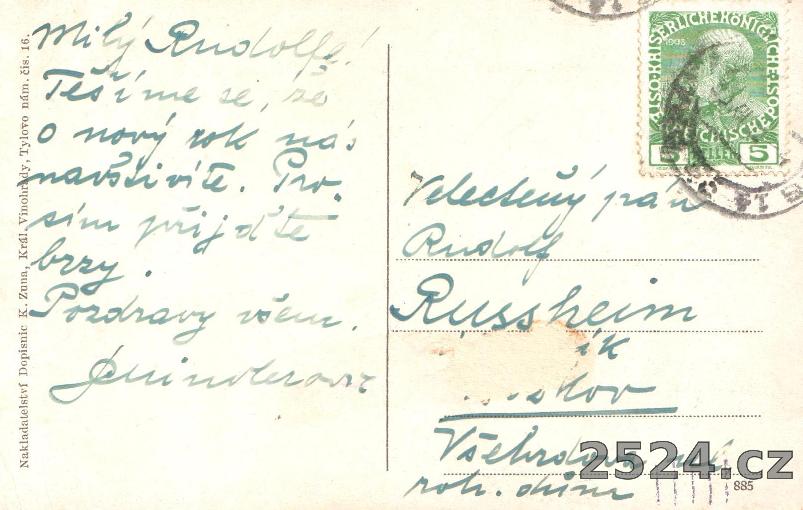 Milý Rudolffe!
Těšíme se, že
o nový rok nás
navštívíte. Pro-
sím přijďte
brzy.
Pozdravy všem.
Nakladatelství Dopisnic K. Zuna, Král. Vinohrady, Tylovo nám. čís. 16.
KAISERLICHE KÖNIGLICHE
1908
5
5
Velectěný pán
Rudolf
Russheim
Všehrdova ul.
roh. dům
885
2524.cz